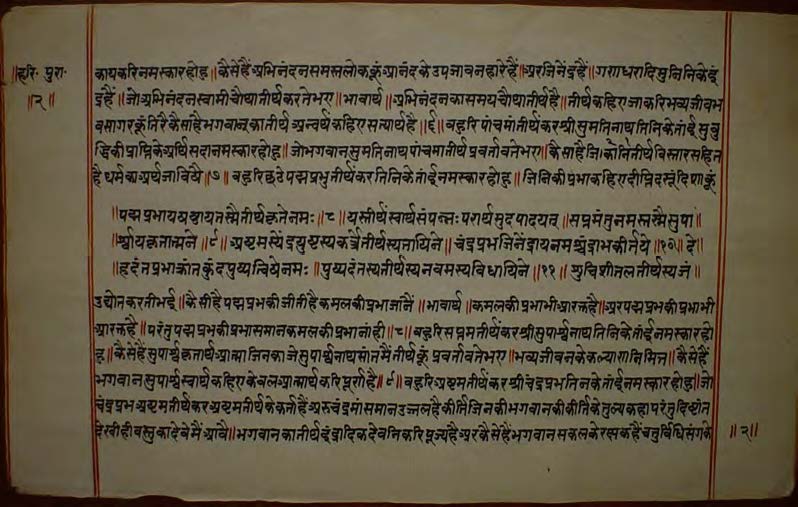 ॥हरि॰ पुरा॰
॥२॥
कायकरिनमस्कारहोहु॥कैसेहैंअभिनंदनसमस्तलोककूंआनंदकेउपजावनहारेहैं॥अरजिनेंद्रहैं॥गणधरादिमुनिनिकेइं
द्रहैं॥जोअभिनंदनस्वामीचौथातीर्थकरतेभए॥भावार्थ॥अभिनंदनकासमयचौथातीर्थहै॥तीर्थकहिएजाकरिभव्यजीवभ
वसागरकूंतिरैकैसाहैभगवान्कातीर्थअन्वर्थकहिएसत्यार्थहै॥६॥बहुरिपांचमांतीर्थकरश्रीसुमतिनाथतिनिकेतांईसुबु
द्धिकीप्राप्तिकेअर्थिसदानमस्कारहोहु॥जोभगवानसुमतिनाथपांचमातीर्थप्रवर्तावतेभए॥कैसाहैजिकौतीर्थविस्तारसहित
हैधर्मकाअर्थजाविषै॥७॥बहुरिछठेपद्मप्रभुतीर्थंकरतिनिकेतांईनमस्कारहोहु॥जिनिकीप्रभाकहिएदीप्तिदसूंदिशाकूं
॥पद्मप्रभाययस्षायतस्मैतीर्थकृतेनमः॥८॥यस्तीर्थंस्वार्थसंपन्नःपरार्थमुदपादयत्॥सप्तमंतुनमस्तस्मैसुपां
॥र्श्वायकृतात्मने॥९॥अष्टमस्येंद्रजुष्टस्यकर्त्रेतीर्थस्यतायिने॥चंद्रप्रभजिनेंद्रायनमश्चंद्राभकीर्तये॥१०॥दे
॥हदंतप्रभाक्रांतकुंदपुष्पत्विषेनमः॥पुष्पदंतस्यतीर्थस्यनवमस्यविधायिने॥११॥शुचिशीतलतीर्थस्यजं
उद्योतकरतीभई॥कैसीहैपद्मप्रभकीजीतीहैकमलकीप्रभाजानैं॥भावार्थ॥कमलकीप्रभाभीआरक्तहै॥अरपद्मप्रभकीप्रभाभी
आरक्तहै॥परंतुपद्मप्रभकीप्रभासमानकमलकीप्रभानांही॥८॥बहुरिसप्तमतीर्थंकरश्रीसुपार्श्वनाथतिनिकेतांईनमस्कारहो
हु॥कैसेहैंसुपार्श्वकृतार्थआत्माजिनकाजेसुपार्श्वनाथसांतमैंतीर्थकूंप्रवर्तावतेभए॥भव्यजीवनकेकल्याणनिमित्त॥कैसेहैं
भगवानसुपार्श्वस्वार्थकहिएकेवलआत्मार्थकरिपूर्णहै॥९॥बहुरिअष्टमतीर्थंकरश्रीचंद्रप्रभतिनकेतांईनमस्कारहोहु॥जो
चंद्रप्रभअष्टमतीर्थकरअष्टमतीर्थकेकर्त्ताहैंअरुचंद्रमांसमानउज्जलहैकीर्तिजिनकीभगवानकीकीर्तिकेतुल्यकहापरंतुदिष्टांत
देखीहीवस्तुकादेवेमैंआवै॥भगवानकातीर्थइंद्रादिकदेवनिकरिपूज्यहैअरकैसेहैंभगवानसकलकेरक्षकहैंचतुर्विधिसंगके
॥२॥